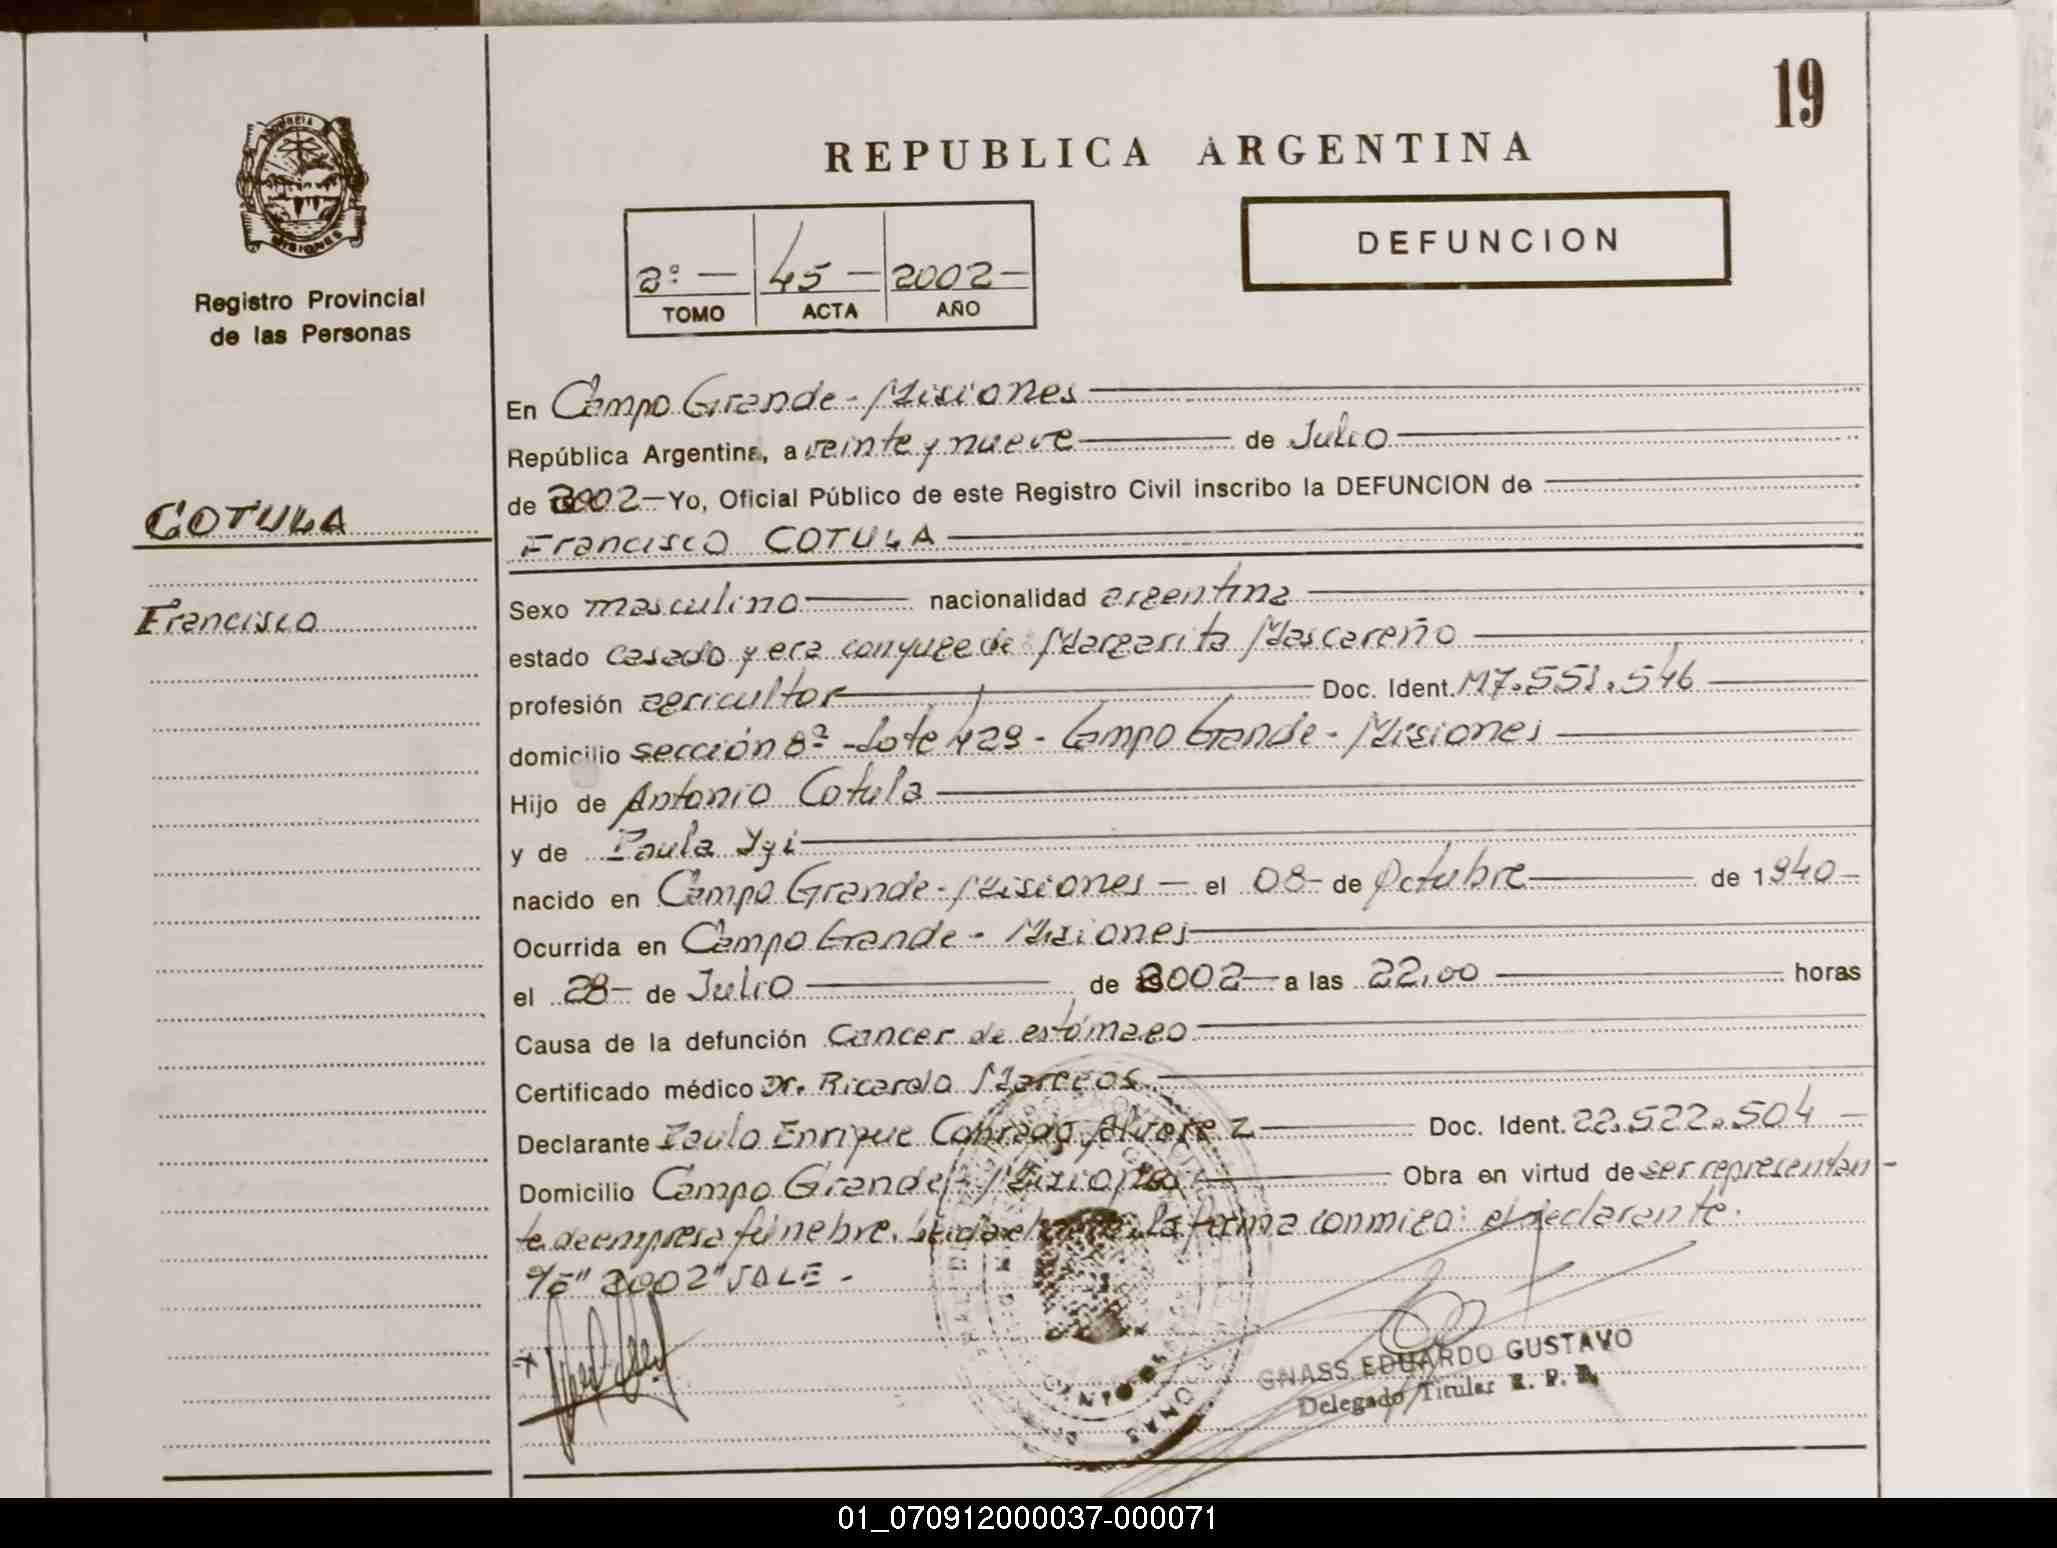 19
REPUBLICA ARGENTINA
DEFUNCION
MISIONES
Registro Provincial
de las Personas
2º — 45 — 2002 —
TOMO ACTA AÑO
En Campo Grande - Misiones
República Argentina, a veinte y nueve de Julio
de 2002 — Yo, Oficial Público de este Registro Civil inscribo la DEFUNCION de
COTULA
Francisco COTULA
Francisco
Sexo masculino nacionalidad argentina
estado casado y era conyuge de Margarita Mascareño
profesión agricultor Doc. Ident. M7.551.546
domicilio sección 8ª - Lote 429 - Campo Grande - Misiones
Hijo de Antonio Cotula
y de Paula Ygi
nacido en Campo Grande - Misiones — el 08 — de Octubre de 1940 —
Ocurrida en Campo Grande - Misiones
el 28 — de Julio de 2002 — a las 22,00 horas
Causa de la defunción Cancer de estómago
Certificado médico Dr. Ricardo
Declarante Paulo Enrique Conrado Alvarez Doc. Ident. 22.522.504 —
Domicilio Campo Grande - Misiones Obra en virtud de ser representan-
te de empresa fúnebre. Leida el acta, la firma conmigo: el declarante.
"2002" VALE -
GNASS EDUARDO GUSTAVO
Delegado Titular R. P. P.
01_070912000037-000071